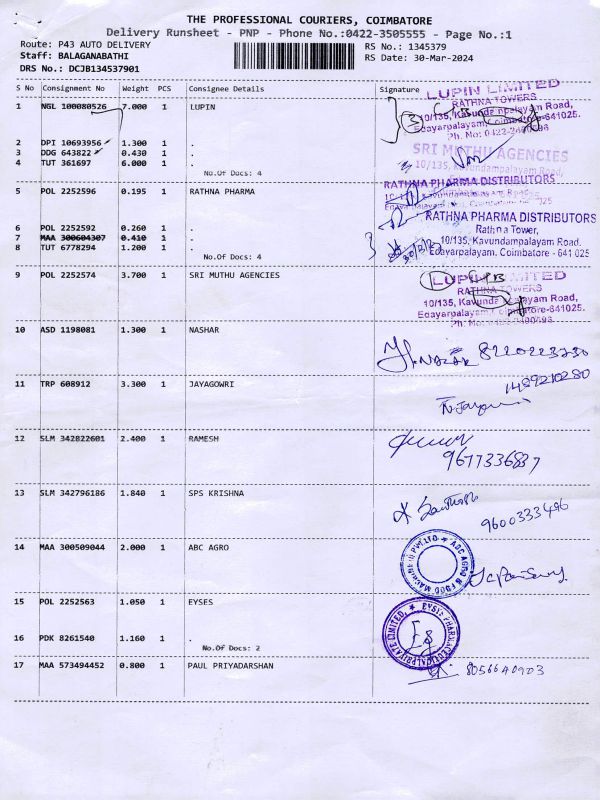 THE PROFESSIONAL COURIERS, COIMBATORE
Delivery Runsheet - PNP - Phone No.:0422-3505555 - Page No.:1
Route: P43 AUTO DELIVERY
Staff: BALAGANABATHI
DRS No.: DCJB134537901
RS No.: 1345379
RS Date: 30-Mar-2024
S No Consignment No Weight PCS Consignee Details Signature
1 NGL 100080526 7.000 1 LUPIN
LUPIN LIMITED
RATHNA TOWERS
10/135, Kavundampalayam Road,
Edayarpalayam, Coimbatore-641025.
3
2 DPI 10693956 1.300 1 .
3 DDG 643822 0.430 1 .
4 TUT 361697 6.000 1 .
No.Of Docs: 4
SRI MUTHU AGENCIES
10/135, Kavundampalayam Road
5 POL 2252596 0.195 1 RATHNA PHARMA
RATHNA PHARMA DISTRIBUTORS
6 POL 2252592 0.260 1 .
7 MAA 300604307 0.410 1 .
8 TUT 6778294 1.200 1 .
No.Of Docs: 4
RATHNA PHARMA DISTRIBUTORS
Rathna Tower,
10/135, Kavundampalayam Road.
Edayarpalayam, Coimbatore - 641 025
9 POL 2252574 3.700 1 SRI MUTHU AGENCIES
LUPIN LIMITED
RATHNA TOWERS
10/135, Kavundampalayam Road,
Edayarpalayam, Coimbatore-641025.
10 ASD 1198081 1.300 1 NASHAR
8220223730
11 TRP 608912 3.300 1 JAYAGOWRI
1489210280
12 SLM 342822601 2.400 1 RAMESH
9677336837
13 SLM 342796186 1.840 1 SPS KRISHNA
9600333496
14 MAA 300509044 2.000 1 ABC AGRO
ABC AGRO & FOOD MACHINE (I) PVT.LTD
15 POL 2252563 1.050 1 EYSES
16 PDK 8261540 1.160 1 .
No.Of Docs: 2
17 MAA 573494452 0.800 1 PAUL PRIYADARSHAN
8056640903